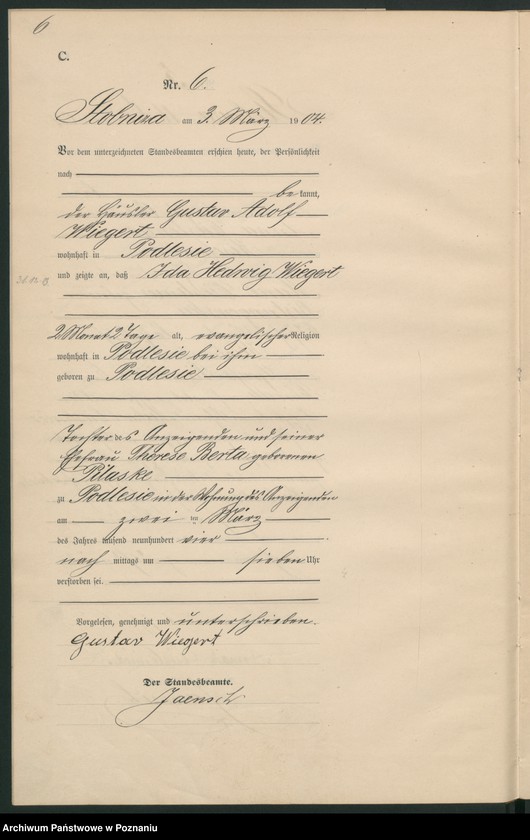 6
C.
Nr. 6.
Stobnica am 3. März 1904.
Vor dem unterzeichneten Standesbeamten erschien heute, der Persönlichkeit
nach
bekannt,
der Häusler Gustav Adolf
Wiegert
wohnhaft in Podlesie
und zeigte an, daß Ida Hedwig Wiegert
2 Monat 2 Tage alt, evangelischer Religion
wohnhaft in Podlesie bei ihm
geboren zu Podlesie
Tochter des Anzeigenden und seiner
Ehefrau Therese Berta geborenen
Pilaske
zu Podlesie in der Wohnung des Anzeigenden
am zwei ten März
des Jahres tausend neunhundert vier
nach mittags um sieben Uhr
verstorben sei.
Vorgelesen, genehmigt und unterschrieben.
Gustav Wiegert
Der Standesbeamte.
Jaensch
Archiwum Państwowe w Poznaniu